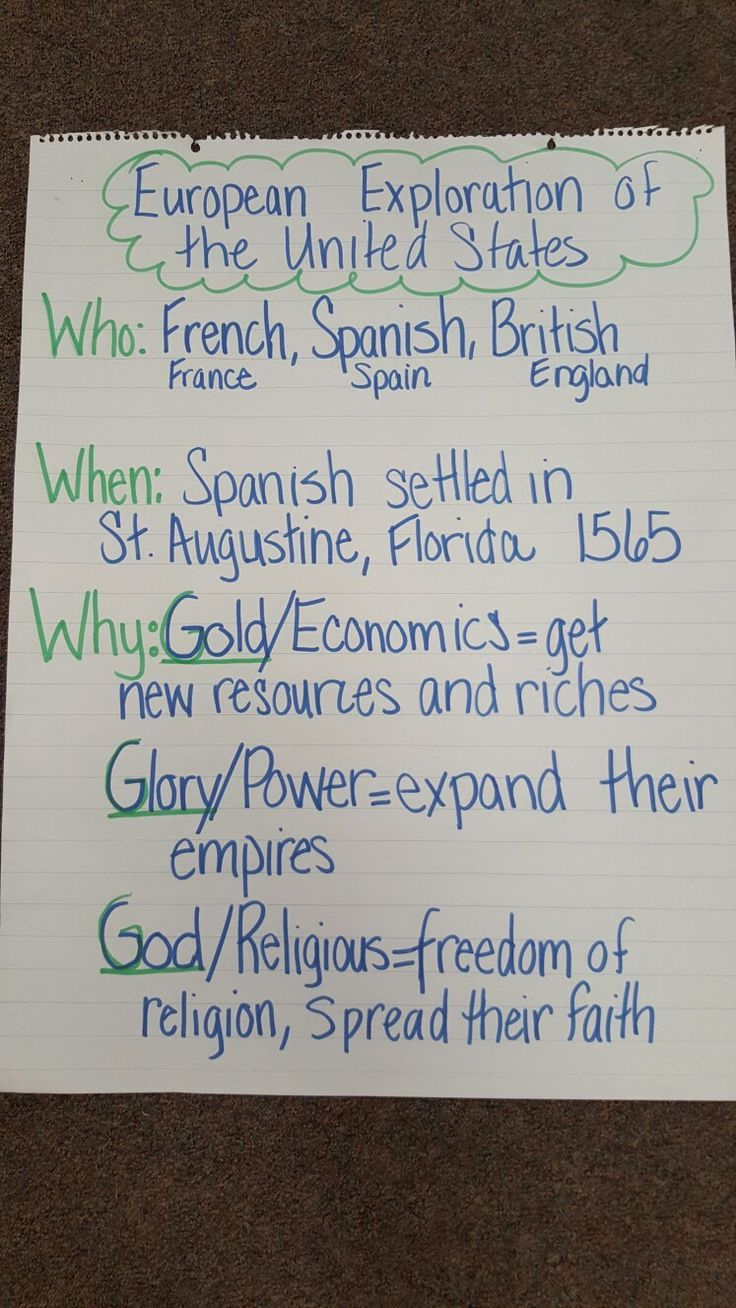 European Exploration of
the United States
Who: French, Spanish, British
France Spain England
When: Spanish settled in
St. Augustine, Florida 1565
Why: Gold/Economics = get
new resources and riches
Glory/Power = expand their
empires
God/Religious = freedom of
religion, Spread their faith